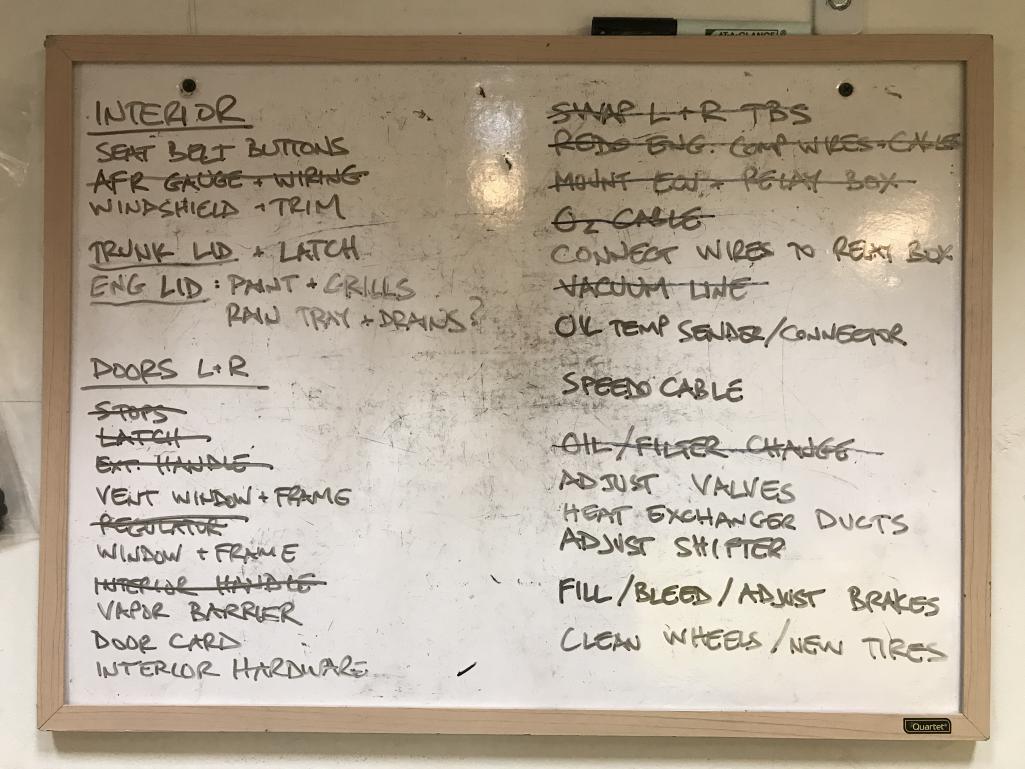 AT-A-GLANCE
INTERIOR
SEAT BELT BUTTONS
AFR GAUGE + WIRING
WINDSHIELD + TRIM
TRUNK LID + LATCH
ENG LID: PAINT + GRILLS
RAIN TRAY + DRAINS?
DOORS L+R
STOPS
LATCH
EXT. HANDLE
VENT WINDOW + FRAME
REGULATOR
WINDOW + FRAME
INTERIOR HANDLE
VAPOR BARRIER
DOOR CARD
INTERIOR HARDWARE
SWAP L+R TBS
REDO ENG. COMP WIRES + CABLES
MOUNT ECU + RELAY BOX
O2 CABLE
CONNECT WIRES TO RELAY BOX
VACUUM LINE
OIL TEMP SENDER/CONNECTOR
SPEEDO CABLE
OIL/FILTER CHANGE
ADJUST VALVES
HEAT EXCHANGER DUCTS
ADJUST SHIFTER
FILL/BLEED/ADJUST BRAKES
CLEAN WHEELS/NEW TIRES
Quartet